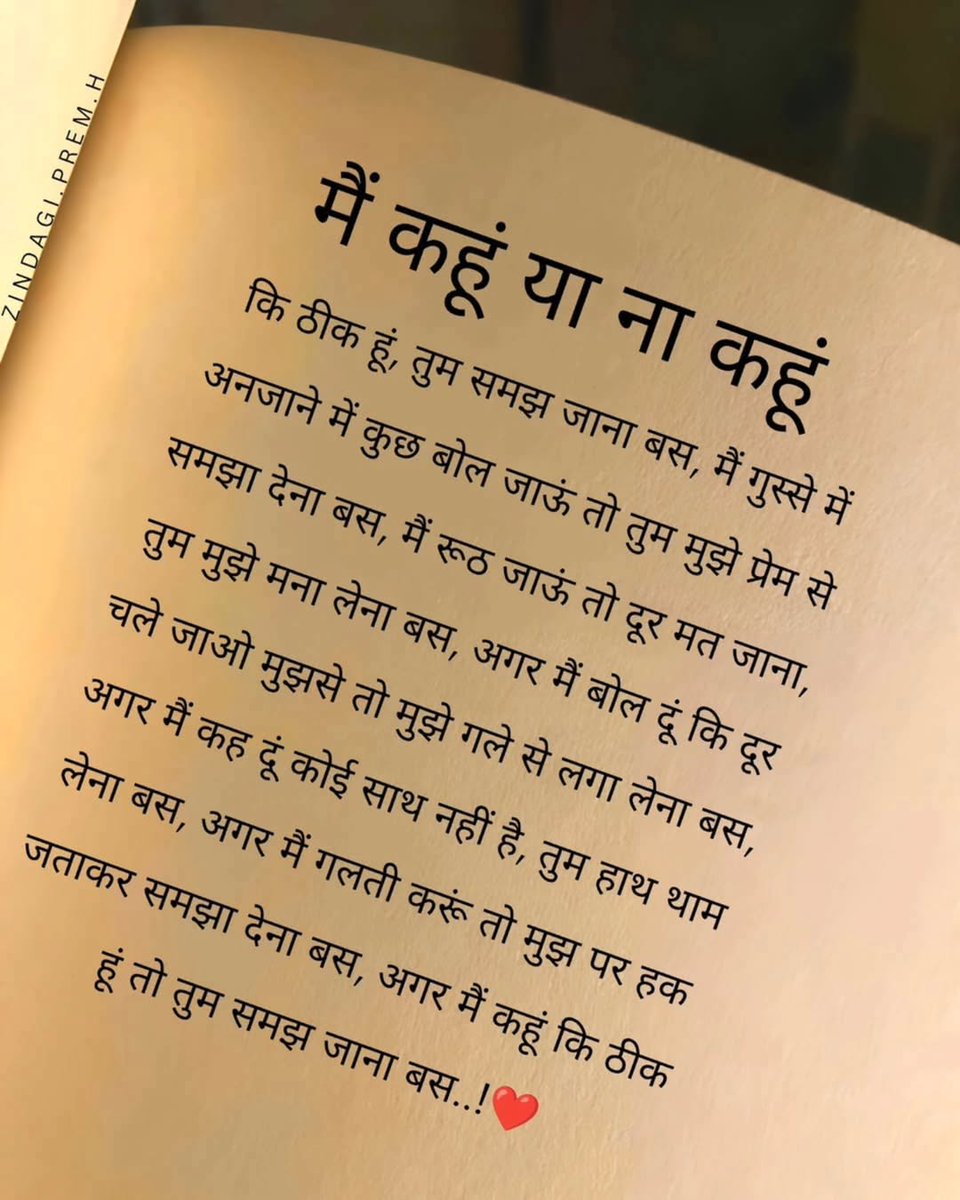 ZINDAGI.PREM.H
मैं कहूं या ना कहूं
कि ठीक हूं, तुम समझ जाना बस, मैं गुस्से में
अनजाने में कुछ बोल जाऊं तो तुम मुझे प्रेम से
समझा देना बस, मैं रूठ जाऊं तो दूर मत जाना,
तुम मुझे मना लेना बस, अगर मैं बोल दूं कि दूर
चले जाओ मुझसे तो मुझे गले से लगा लेना बस,
अगर मैं कह दूं कोई साथ नहीं है, तुम हाथ थाम
लेना बस, अगर मैं गलती करूं तो मुझ पर हक
जताकर समझा देना बस, अगर मैं कहूं कि ठीक
हूं तो तुम समझ जाना बस..!❤️